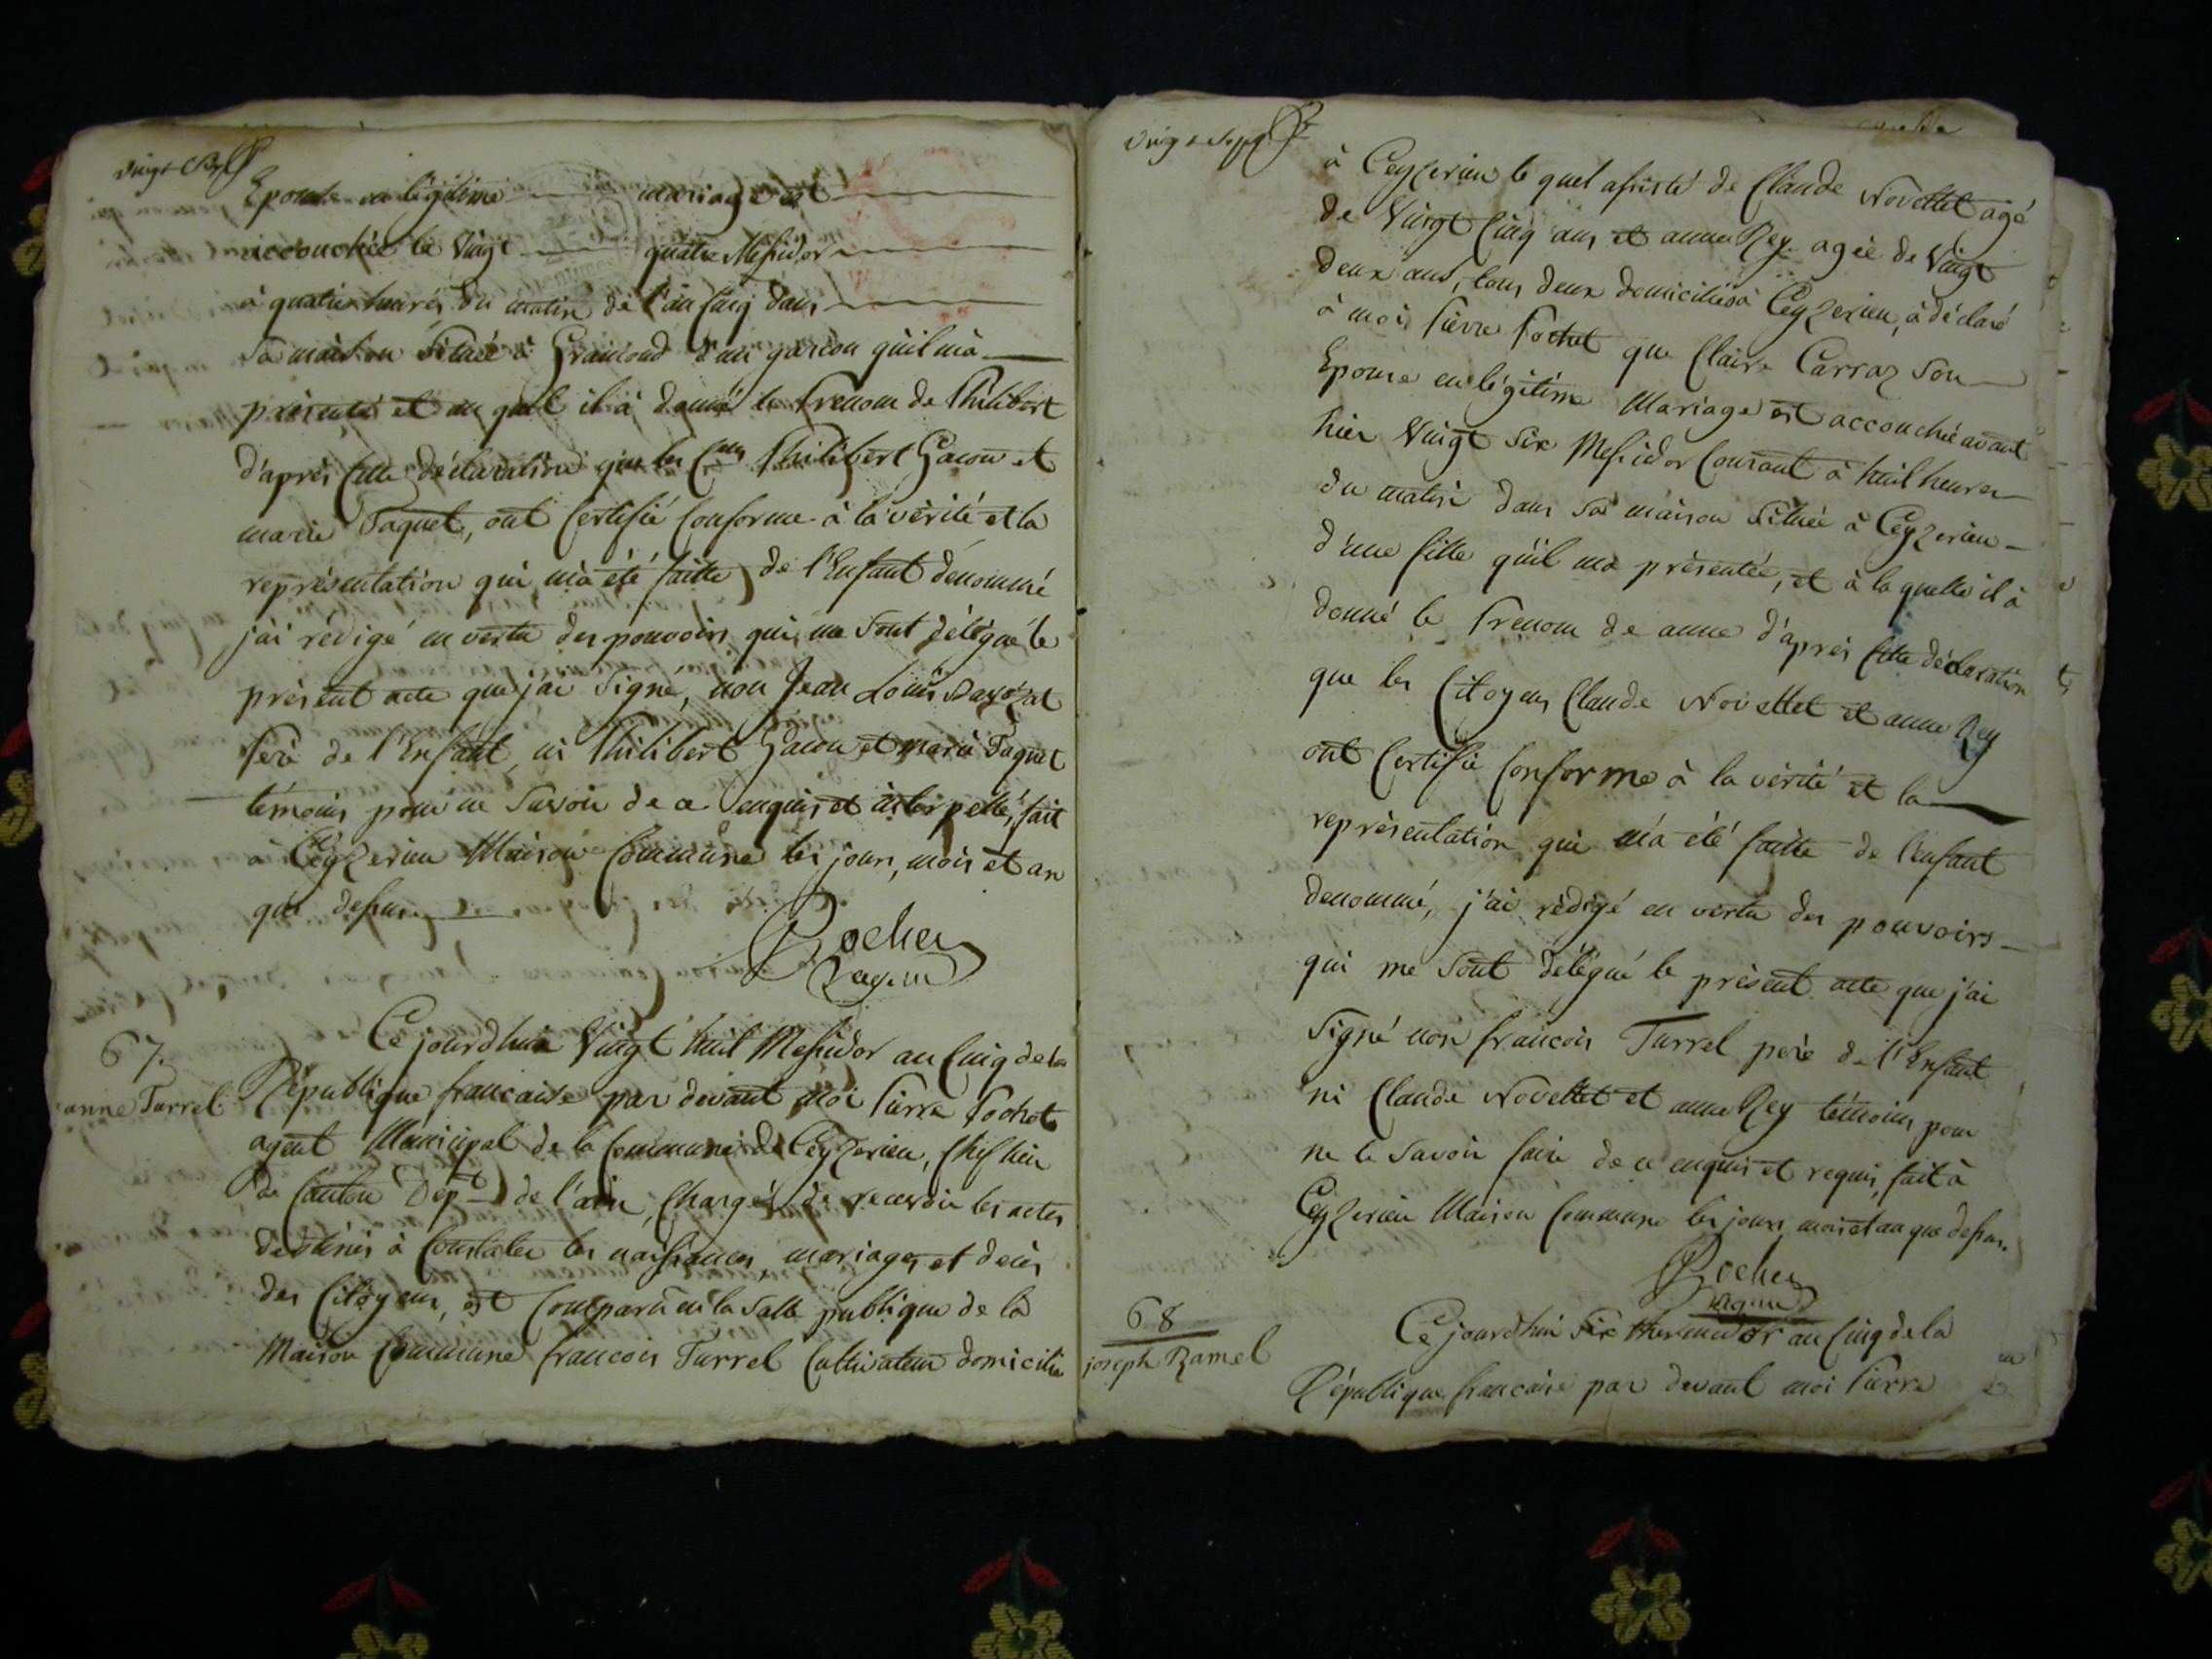 Epouse en légitime mariage est
accouchée le Vingt quatre Messidor
à quatre heures du matin de l'an Cinq dans
sa maison située à Gramond d'un garcon qu'il m'a
présenté et au quel il à donné le Prenom de Philibert
d'après cette déclaration que les Cens Philibert Gacon et
marie Taquet, ont Certifié Conforme à la vérité et la
représentation qui m'a été faitte de l'Enfant dénommé
j'ai rédigé en vertu des pouvoirs qui me sont délégué le
présent acte que j'ai signé, non Jean Louis
Pere de l'Enfant, ni Philibert Gacon et marie Taquet
témoins pour ne savoir de ce enquis et interpellé, fait
à Ceyzerieu Maison Commune les jours, mois et an
que dessus
Rochet
agent
67.
anne Turrel
Ce jourd'hui Vingt huit Messidor an Cinq de la
République francaise par devant moi Pierre Pochet
agent Municipal de la Commune de Ceyzerieu, Chef lieu
de Canton Dept de l'ain, Chargé de recevoir les actes
destinés à Constater les naissances, mariages et décès
des Citoyens, est Comparu en la salle publique de la
Maison Commune francois Turrel Cultivateur domicilié
Vingt Sept
à Ceyzerieu le quel assisté de Claude Novettet agé
de Vingt Cinq ans et anne Rey agée de Vingt
deux ans, tous deux domiciliés à Ceyzerieu, à déclaré
à moi Pierre Pochet que Claire Carraz son
Epouse en légitime Mariage est accouchée avant
hier Vingt Six Messidor Courant à huit heures
du matin dans sa maison située à Ceyzerieu
d'une fille qu'il ma présentée, et à la quelle il à
donné le Prenom de anne d'après cette déclaration
que les Citoyens Claude Novettet et anne Rey
ont Certifié Conforme à la vérité et la
représentation qui m'a été faitte de l'enfant
denommé, j'ai rédigé en vertu des pouvoirs
qui me sont délégué le présent acte que j'ai
signé non francois Turrel pere de l'Enfant
ni Claude Novettet et anne Rey témoins pour
ne le savoir faire de ce enquis et requis, fait à
Ceyzerieu Maison Commune les jours, mois et an que dessus.
Rochet
agent
68
joseph Ramel
Ce jourd'hui six thermidor an Cinq de la
République francaise par devant moi Pierre